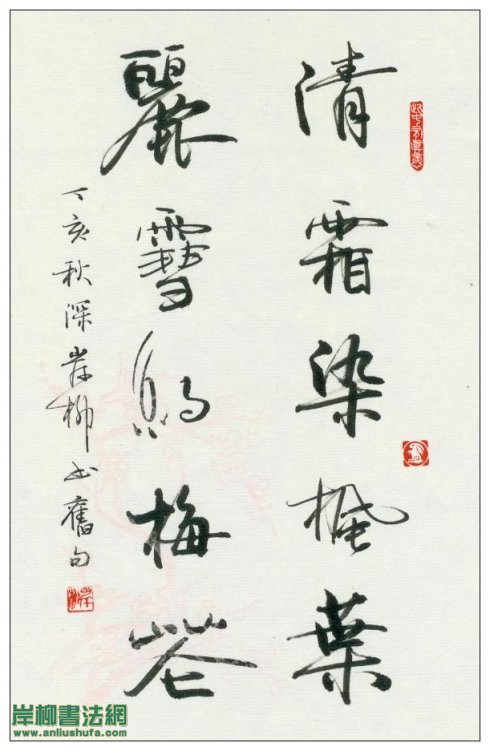 清霜染楓葉
麗雪點梅花
丁亥秋深岸柳书舊句
岸柳書法網
www.anliushufa.com